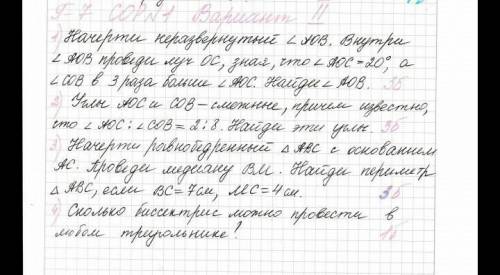 Г-7 СОР№1 Вариант II
1) Начерти неразвернутый ∠АОВ. Внутри
∠АОВ проведи луч ОС, зная, что ∠АОС=20°, а
∠СОВ в 3 раза больше ∠АОС. Найди ∠АОВ. 3б
2) Углы АОС и СОВ - смежные, причем известно,
что ∠АОС : ∠СОВ = 2:8. Найди эти углы. 3б
3) Начерти равнобедренный △АВС с основанием
АС. Проведи медиану ВМ. Найди периметр
△АВС, если ВС=7см, МС=4см. 3б
4) Сколько биссектрис можно провести в
любом треугольнике? 1б